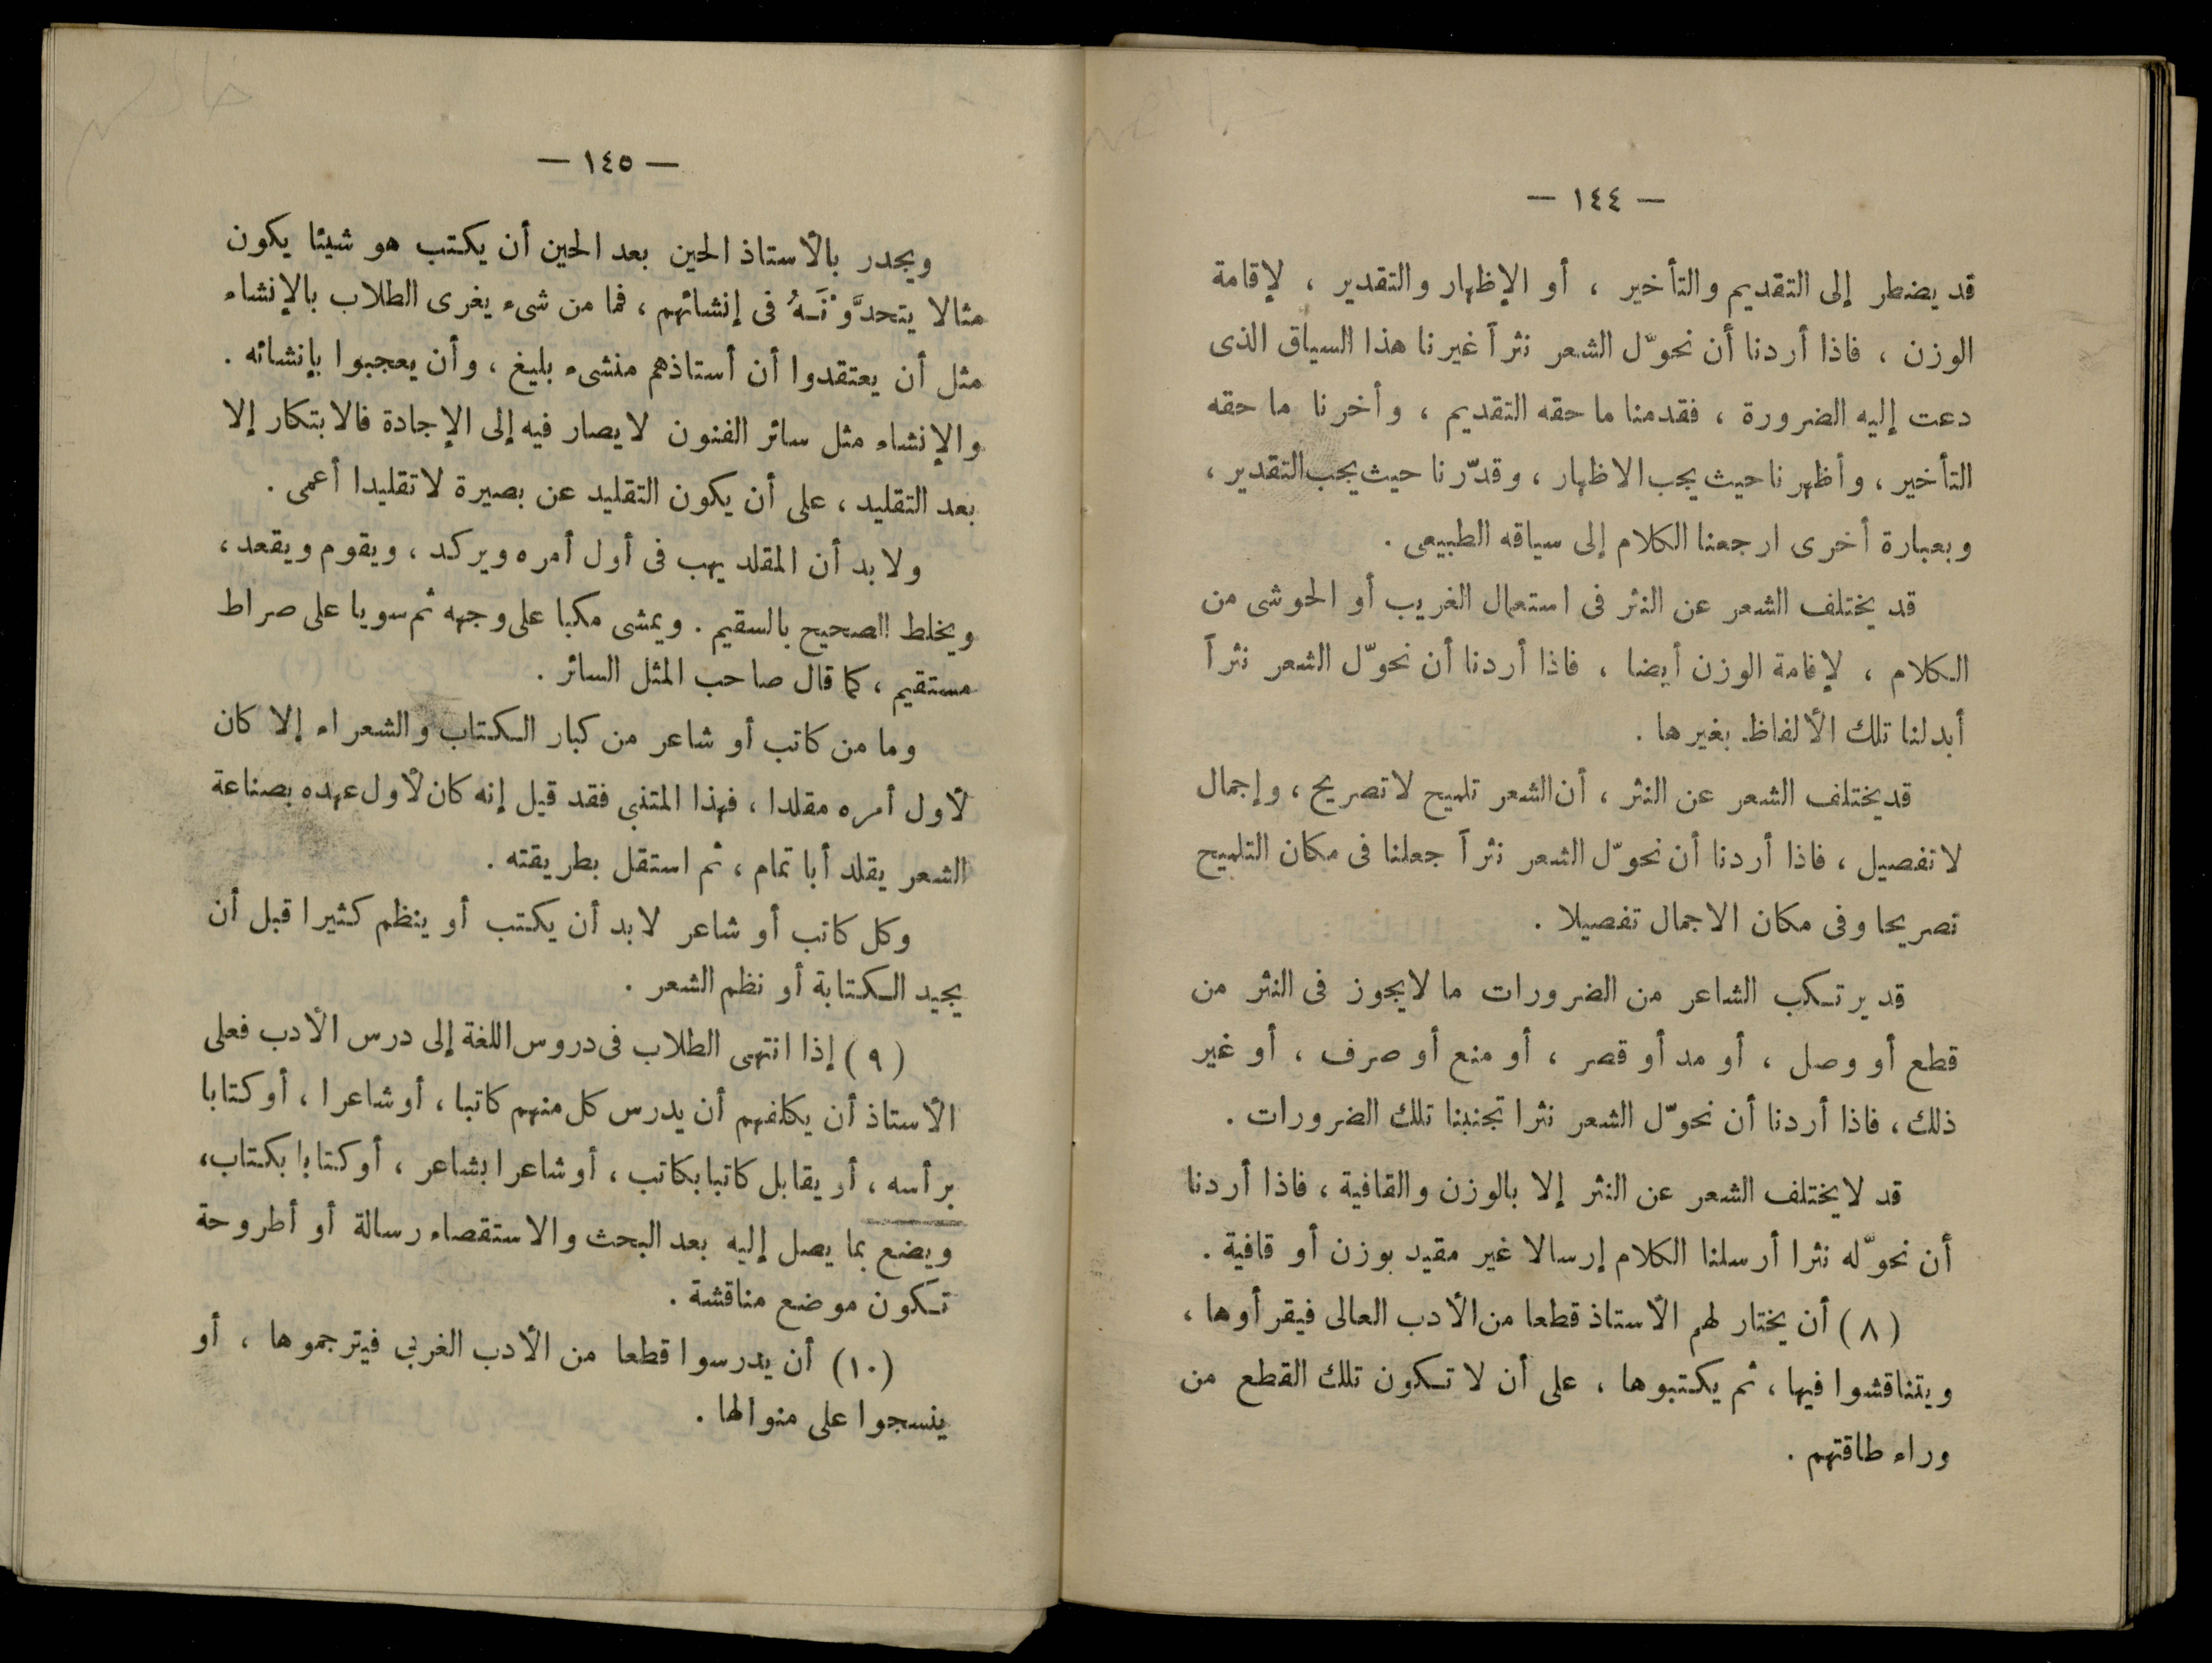 — ١٤٤ —
قد يضطر إلى التقديم والتأخير ، أو الإظهار والتقدير ، لإقامة
الوزن ، فاذا أردنا أن نحوّل الشعر نثرآ غيرنا هذا السياق الذى
دعت إليه الضرورة ، فقدمنا ما حقه التقديم ، وأخرنا ما حقه
التأخير ، وأظهرنا حيث يجب الاظهار ، وقدّرنا حيث يجب التقدير ،
وبعبارة أخرى ارجعنا الكلام إلى سياقه الطبيعى .
قد يختلف الشعر عن النثر فى استعمال الغريب أو الحوشى من
الكلام ، لإقامة الوزن أيضا ، فاذا أردنا أن نحوّل الشعر نثرآ
أبدلنا تلك الألفاظ بغيرها .
قد يختلف الشعر عن النثر ، أن الشعر تلميح لا تصريح ، وإجمال
لا تفصيل ، فاذا أردنا أن نحوّل الشعر نثرآ جعلنا فى مكان التلميح
تصريحا وفى مكان الاجمال تفصيلا .
قد يرتكب الشاعر من الضرورات ما لا يجوز فى النثر من
قطع أو وصل ، أو مد أو قصر ، أو منع أو صرف ، أو غير
ذلك ، فاذا أردنا أن نحوّل الشعر نثرا تجنبنا تلك الضرورات .
قد لا يختلف الشعر عن النثر إلا بالوزن والقافية ، فاذا أردنا
أن نحوّله نثرا أرسلنا الكلام إرسالا غير مقيد بوزن أو قافية .
(٨) أن يختار لهم الأستاذ قطعا من الأدب العالى فيقرأوها ،
ويتناقشوا فيها ، ثم يكتبوها ، على أن لا تكون تلك القطع من
وراء طاقتهم .
— ١٤٥ —
ويجدر بالأستاذ الحين بعد الحين أن يكتب هو شيئا يكون
مثالا يتحدَّوْنَهُ فى إنشائهم ، فما من شىء يغرى الطلاب بالإنشاء
مثل أن يعتقدوا أن أستاذهم منشىء بليغ ، وأن يعجبوا بإنشائه .
والإنشاء مثل سائر الفنون لا يصار فيه إلى الإجادة فالابتكار إلا
بعد التقليد ، على أن يكون التقليد عن بصيرة لا تقليدا أعمى .
ولا بد أن المقلد يهب فى أول أمره ويركد ، ويقوم ويقعد ،
ويخلط الصحيح بالسقيم . ويمشى مكبا على وجهه ثم سويا على صراط
مستقيم ، كما قال صاحب المثل السائر .
وما من كاتب أو شاعر من كبار الكتاب والشعراء إلا كان
لأول أمره مقلدا ، فهذا المتنبى فقد قيل إنه كان لأول عهده بصناعة
الشعر يقلد أبا تمام ، ثم استقل بطريقته .
وكل كاتب أو شاعر لا بد أن يكتب أو ينظم كثيرا قبل أن
يجيد الكتابة أو نظم الشعر .
(٩) إذا انتهى الطلاب فى دروس اللغة إلى درس الأدب فعلى
الأستاذ أن يكلفهم أن يدرس كل منهم كاتبا ، أو شاعرا ، أو كتابا
برأسه ، أو يقابل كاتبا بكاتب ، أو شاعرا بشاعر ، أو كتابا بكتاب،
ويضع بما يصل إليه بعد البحث والاستقصاء رسالة أو أطروحة
تكون موضع مناقشة .
(١٠) أن يدرسوا قطعا من الأدب الغربي فيترجموها ، أو
ينسجوا على منوالها .